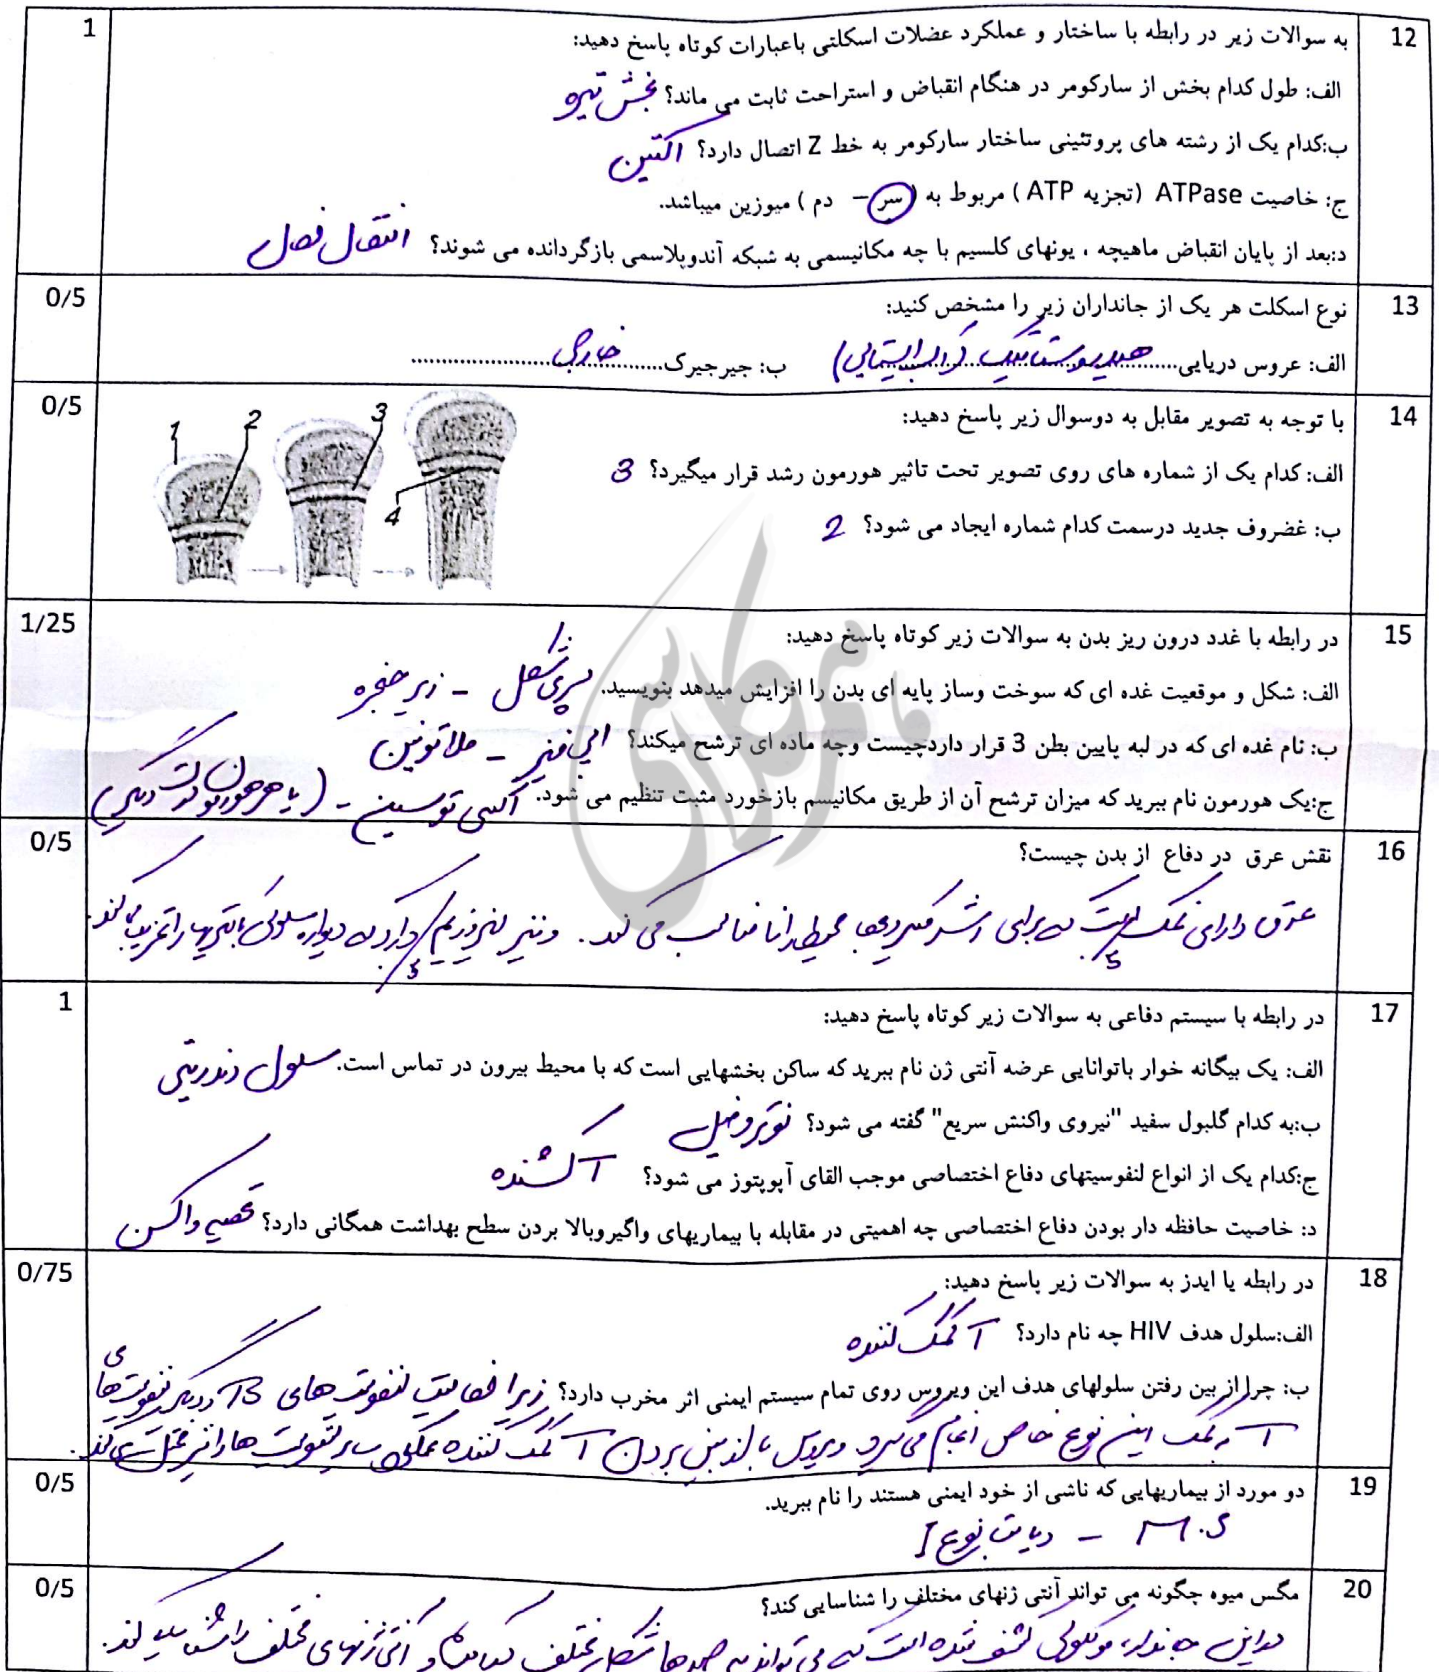 12 به سوالات زیر در رابطه با ساختار و عملکرد عضلات اسکلتی باعبارات کوتاه پاسخ دهید: 1
الف: طول کدام بخش از سارکومر در هنگام انقباض و استراحت ثابت می ماند؟ بخش تیره
ب:کدام یک از رشته های پروتئینی ساختار سارکومر به خط Z اتصال دارد؟ اکتین
ج: خاصیت ATPase (تجزیه ATP ) مربوط به ( سر – دم ) میوزین میباشد.
د:بعد از پایان انقباض ماهیچه ، یونهای کلسیم با چه مکانیسمی به شبکه آندوپلاسمی بازگردانده می شوند؟ انتقال فعال
13 نوع اسکلت هر یک از جانداران زیر را مشخص کنید: 0/5
الف: عروس دریایی......هیدروستاتیک (آب ایستایی) ب: جیرجیرک......خارجی......
14 با توجه به تصویر مقابل به دوسوال زیر پاسخ دهید: 0/5
1 2 3 4
الف: کدام یک از شماره های روی تصویر تحت تاثیر هورمون رشد قرار میگیرد؟ 3
ب: غضروف جدید درسمت کدام شماره ایجاد می شود؟ 2
15 در رابطه با غدد درون ریز بدن به سوالات زیر کوتاه پاسخ دهید: 1/25
الف: شکل و موقعیت غده ای که سوخت وساز پایه ای بدن را افزایش میدهد بنویسید. سپری شکل – زیر حنجره
ب: نام غده ای که در لبه پایین بطن 3 قرار داردچیست وچه ماده ای ترشح میکند؟ اپی فیز – ملاتونین
ج:یک هورمون نام ببرید که میزان ترشح آن از طریق مکانیسم بازخورد مثبت تنظیم می شود. اکسی توسین – (یا هر هورمون درست دیگر)
ماهر کلاسی
16 نقش عرق در دفاع از بدن چیست؟ 0/5
عرق دارای نمک است که برای رشد میکروبها محیط را نامناسب می کند. و نیز لیزوزیم دارد که دیواره سلولی باکتریها را تخریب می کند.
17 در رابطه با سیستم دفاعی به سوالات زیر کوتاه پاسخ دهید: 1
الف: یک بیگانه خوار باتوانایی عرضه آنتی ژن نام ببرید که ساکن بخشهایی است که با محیط بیرون در تماس است. سلول دندریتی
ب:به کدام گلبول سفید "نیروی واکنش سریع" گفته می شود؟ نوتروفیل
ج:کدام یک از انواع لنفوسیتهای دفاع اختصاصی موجب القای آپوپتوز می شود؟ T کشنده
د: خاصیت حافظه دار بودن دفاع اختصاصی چه اهمیتی در مقابله با بیماریهای واگیروبالا بردن سطح بهداشت همگانی دارد؟ تهیه واکسن
18 در رابطه یا ایدز به سوالات زیر پاسخ دهید: 0/75
الف:سلول هدف HIV چه نام دارد؟ T کمک کننده
ب: چرا از بین رفتن سلولهای هدف این ویروس روی تمام سیستم ایمنی اثر مخرب دارد؟ زیرا فعالیت لنفوسیت های B و دیگر لنفوسیت های
T به کمک این نوع خاص انجام می گیرد ویروس با از بین بردن T کمک کننده عملکرد سایر لنفوسیت ها را نیز مختل می کند.
19 دو مورد از بیماریهایی که ناشی از خود ایمنی هستند را نام ببرید. 0/5
M.S – دیابت نوع I
20 مگس میوه چگونه می تواند آنتی ژنهای مختلف را شناسایی کند؟ 0/5
در این جاندار، مولکولی کشف شده است که می تواند به صدها شکل مختلف درآید و آنتی ژنهای مختلف را شناسایی کند.